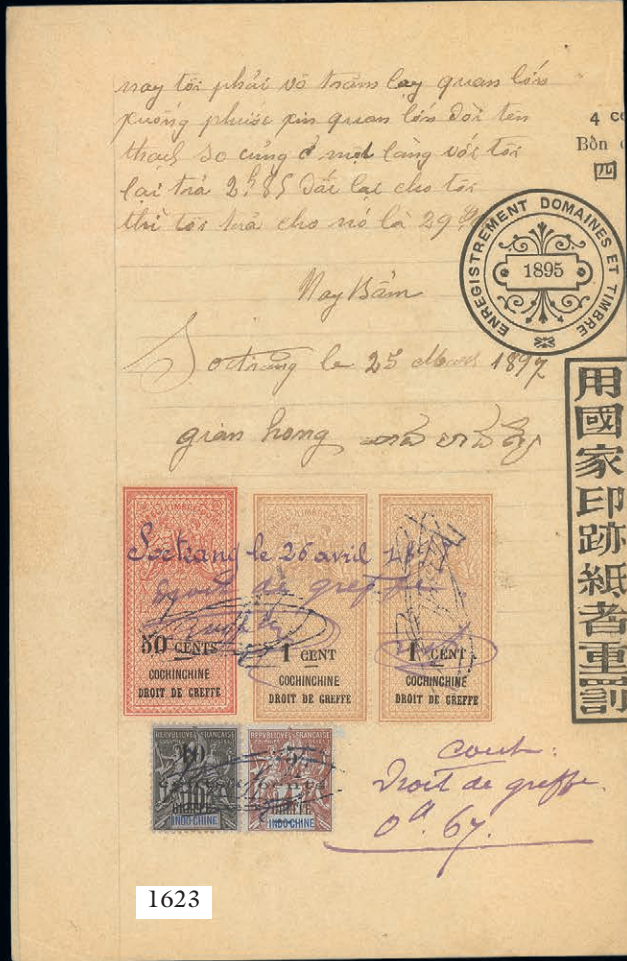 nay tôi phải vô trăm lạy quan lớn
xuống phước xin quan lớn đòi tên
thạch so cũng ở một làng với tôi
lại trả 2h85 đất lại cho tôi
thì tôi trả cho nó là 29
4
Bổn
四
ENREGISTREMENT DOMAINES ET TIMBRE
1895
Nay Bẩm
Soctrang le 25 Mars 1897
gian hong
用國家印跡紙者重罰
Soctrang le 26 avril
de greffe
50 CENTS
COCHINCHINE
DROIT DE GREFFE
1 CENT
COCHINCHINE
DROIT DE GREFFE
1 CENT
COCHINCHINE
DROIT DE GREFFE
REPUBLIQUE FRANCAISE
10
GREFFE
INDO-CHINE
REPUBLIQUE FRANCAISE
5
GREFFE
INDO-CHINE
cout:
Droit de greffe.
0$.67.
1623